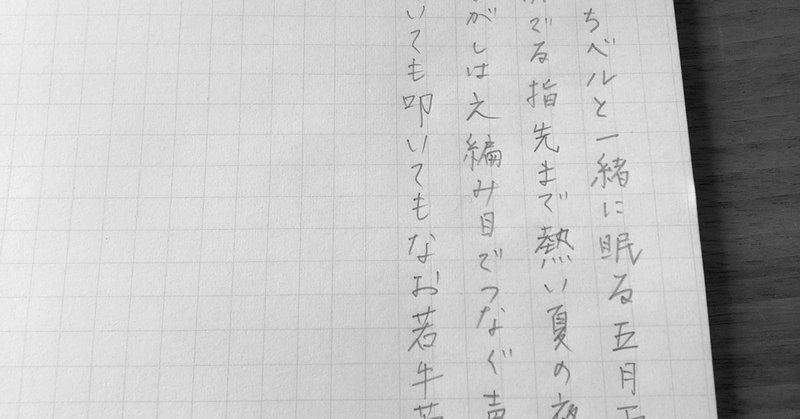 ちベルと一緒に眠る五月
でる指先まで熱い夏の夜
がしはえ編み目でつなぐ声
いても叩いてもなお若牛